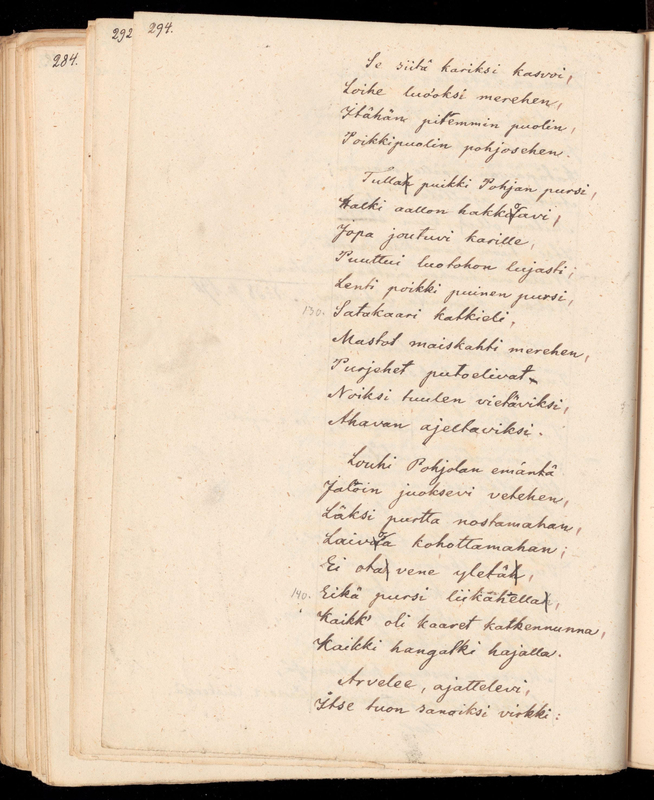 284.
292
294.
Se siitä kariksi kasvoi,
Loihe luooksi merehen,
Itähän pitemmin puolin,
Poikkipuolin pohjosehen.
Tullah puikki Pohjan pursi,
Halki aallon hakkitavi,
Jopa joutuvi karille,
Puuttui luotohon lujasti;
Lenti poikki puinen pursi,
130. Satakaari katkieli,
Mastot maiskahti merehen,
Purjehet putoelivat
Noiksi tuulen vietäviksi,
Ahavan ajeltaviksi.
Louhi Pohjolan emäntä
Jaloin juoksevi vetehen,
Läksi purtta nostamahan,
Laivata kohottamahan;
Ei ota vene yletäk,
140. Eikä pursi liikähtella,
Kaikk' oli kaaret katkennunna,
Kaikki hangatki hajalla.
Arvelee, ajattelevi,
Itse tuon sanoiksi virkki: